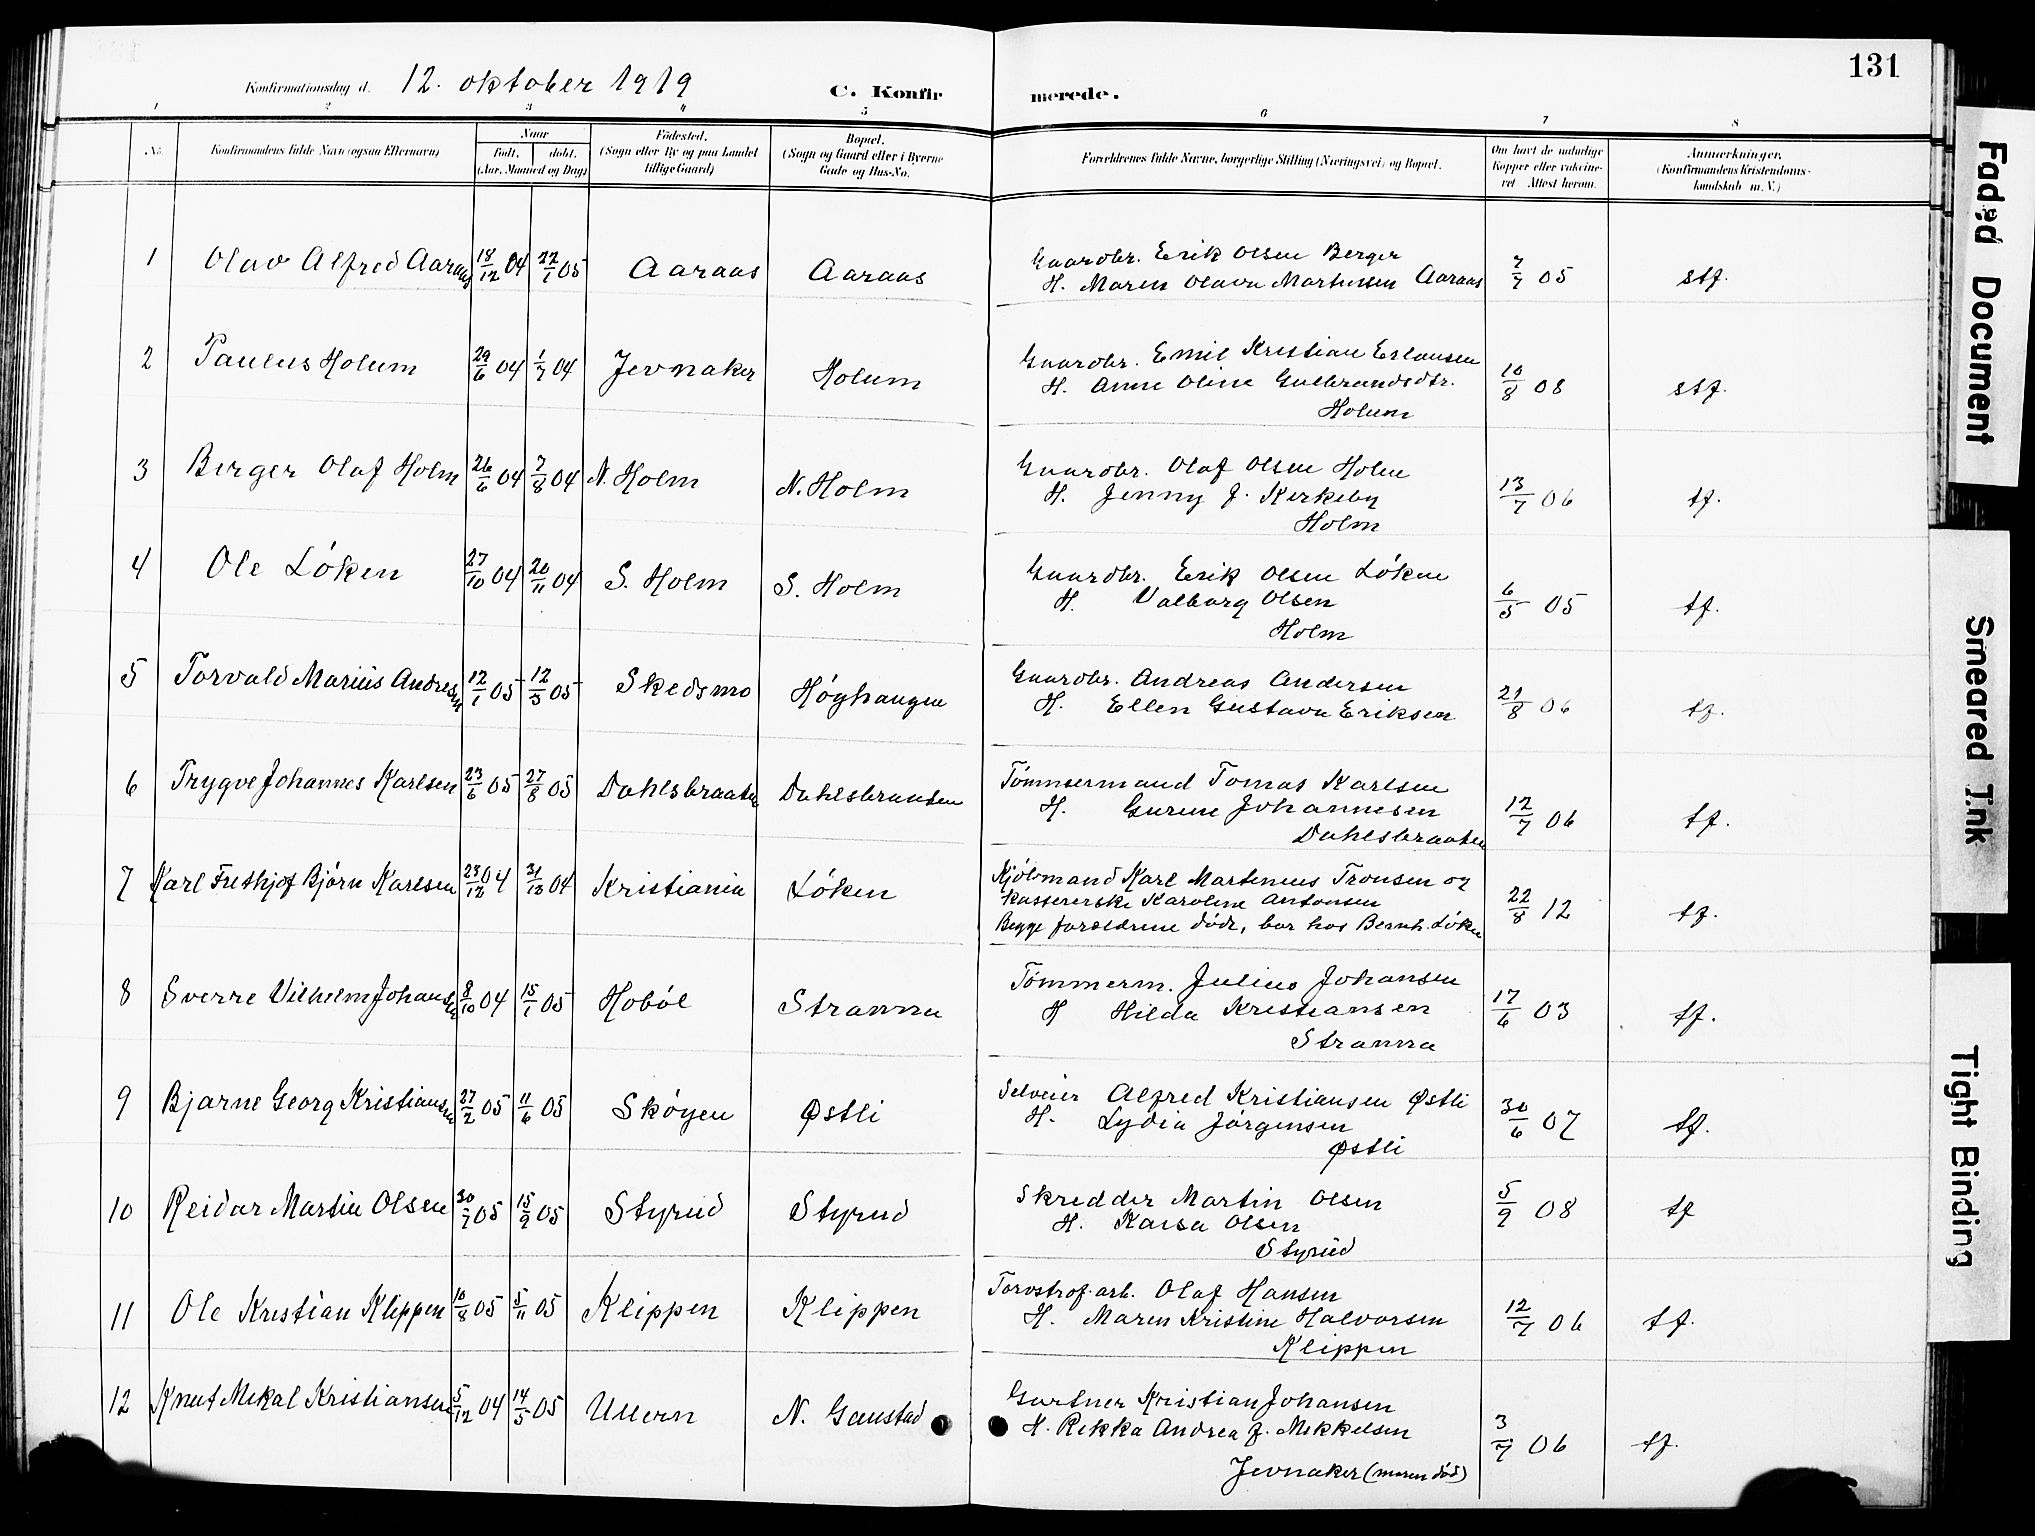 131
Konfirmationsdag d. 12. oktober 1919 C. Konfirmerede.
1 2 3 4 5 6 7 8
No. Konfirmandens fulde Navn (ogsaa Efternavn) Naar Födt. döbt. (Aar, Maaned og Dag) Födested. (Sogn eller By og paa Landet tillige Gaard) Bopæl. (Sogn og Gaard eller i Byerne Gade og Hus-No. Forældrenes fulde Navne, borgerlige Stilling (Næringsvei) og Bopæl. Om havt de naturlige Kopper eller vakcineret Attest herom. Anmærkninger. (Konfirmandens Kristendomskundskab m. V.)
1 Olav Alfred Aaraas 18/12 04 22/1 05 Aaraas Aaraas Gaardbr. Erik Olsen Berger 7/7 05 stf.
H. Maren Olava Martinsen Aaraas
2 Paulus Holum 29/6 04 1/7 04 Jevnaker Holum Gaardbr. Emil Kristian Erlansen 10/8 08 stf.
H. Anne Oline Gulbrandsdtr.
Holum
3 Birger Olaf Holm 26/6 04 7/8 04 N. Holm N. Holm Gaardbr. Olaf Olsen Holm 13/7 06 tf.
H. Jenny J. Kirkeby
Holm
4 Ole Löken 27/10 04 20/11 04 S. Holm S. Holm Gaardbr. Erik Olsen Löken 6/5 05 tf.
H. Valborg Olsen
Holm
5 Torvald Marius Andresen 12/1 05 12/3 05 Skedsmo Høghaugen Gaardbr. Andreas Andersen 21/8 06 tf.
H. Ellen Gustava Eriksen
6 Trygve Johannes Karlsen 23/6 05 27/8 05 Dahlsbraaten Dahlsbraaten Tömmermand Tomas Karlsen 12/7 06 tf.
H. Gurine Johannesen
Dahlsbraaten
7 Karl Frithjof Björn Karlsen 04 04 Kristiania Löken Kjöbmand Karl Martinius Tronsen og 22/8 12 tf.
kassererske Karoline Antonsen
Begge forældrene döde, bor hos Bernh. Löken
8 Sverre Vilhelm Johansen 8/10 04 15/1 05 Hoböl Stranna Tömmerm. Julius Johansen 17/6 03 tf.
H Hilda Kristiansen
Stranna
9 Bjarne Georg Kristiansen 27/2 05 11/6 05 Sköyen Østli Selveier Alfred Kristiansen Østli 30/6 07 tf.
H. Lydia Jörgensen
Østli
10 Reidar Martin Olsen 30/7 05 15/9 05 Styrud Styrud Skredder Martin Olsen 5/9 08 tf
H. Kaisa Olsen
Styrud
11 Ole Kristian Klippen 10/8 05 5/11 05 Klippen Klippen Torvstrøf.arb. Olaf Hansen 12/7 06 tf.
H. Maren Kristine Halvorsen
Klippen
12 Knut Mikal Kristiansen 5/12 04 14/5 05 Ullern N. Gaustad Gartner Kristian Johansen 3/7 06 tf.
H. Rikka Andrea f. Mikkelsen
Jevnaker (moren död)
Faded Document
Smeared Ink
Tight Binding